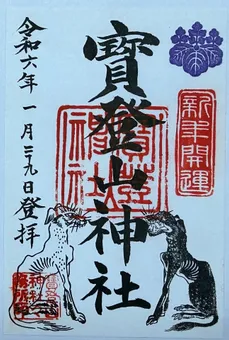 新年開運
寶登山神社
寶登山神社
令和六年 一月二十九日登拝